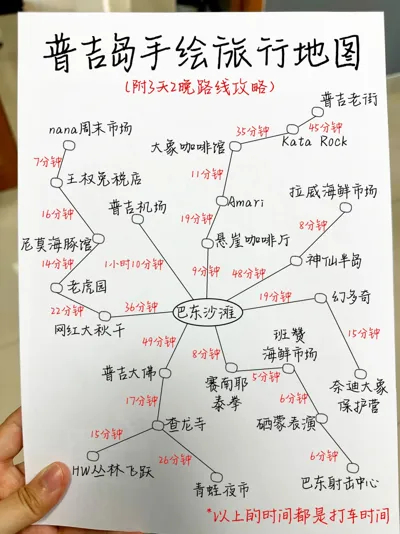 普吉岛手绘旅行地图
(附3天2晚路线攻略)
普吉老街
nana周末市场
35分钟
45分钟
大象咖啡馆
Kata Rock
7分钟
王权免税店
11分钟
拉威海鲜市场
普吉机场
Amari
16分钟
19分钟
8分钟
尼莫海豚馆
悬崖咖啡厅
神仙半岛
14分钟
1小时10分钟
9分钟
48分钟
老虎园
19分钟
幻多奇
22分钟
36分钟
巴东沙滩
网红大秋千
49分钟
班赞
海鲜市场
15分钟
8分钟
普吉大佛
赛南耶
泰拳
5分钟
奈迪大象
保护营
17分钟
查龙寺
硒蒙表演
6分钟
15分钟
6分钟
HW丛林飞跃
26分钟
青蛙夜市
巴东射击中心
*以上的时间都是打车时间